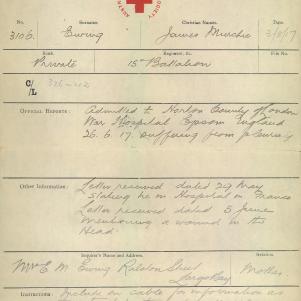 SOCIETY
No.
Surname.
Christian Names.
Date.
3106.
Ewing
James Murchie
3/8/17
Rank.
Regiment, &c.
File No.
Private
15th Battalion
C/L
OFFICIAL REPORTS:
Admitted to Horton County of London
War Hospital Epsom England
26.6.17. suffering from pleurisy
Other Information:
Letter received dated 29 May
stating he in Hospital in France
Letter received dated 5 June
mentioning a wound in the
Head.
Inquirer's Name and Address.
Relation.
Mrs E. M Ewing Ralston Street
Largs Bay
Mother
Instructions:
Include in cable for information as